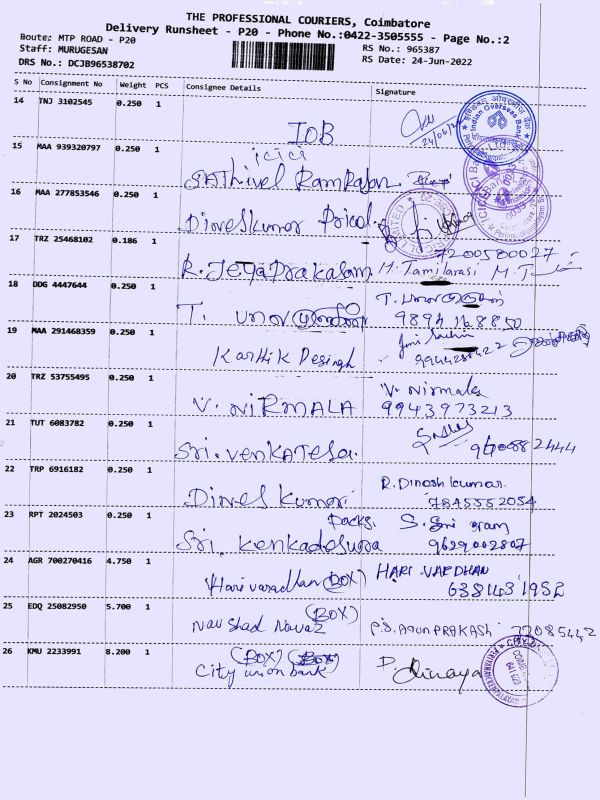 THE PROFESSIONAL COURIERS, Coimbatore
Delivery Runsheet - P20 - Phone No.:0422-3505555 - Page No.:2
Route: MTP ROAD - P20
RS No.: 965387
Staff: MURUGESAN
RS Date: 24-Jun-2022
DRS No.: DCJB96538702
S No Consignment No Weight PCS Consignee Details Signature
14 TNJ 3102545 0.250 1
IOB
Indian Overseas Bank
15 MAA 939320797 0.250 1
ICICI
SAthivel Ramrajan
16 MAA 277853546 0.250 1
Dineskumar Pricol
17 TRZ 25468102 0.186 1
7200580027
R. Jeya Prakasam M. Tamilarasi M.T
18 DDG 4447644 0.250 1
T.
9894168850
19 MAA 291468359 0.250 1
Karthik Desingh
9944284422
20 TRZ 53755495 0.250 1
V. NIRMALA
V. Nirmala
9943973213
21 TUT 6083782 0.250 1
Sri. Venkatesa.
22 TRP 6916182 0.250 1
Dines Kumar.
R. Dinesh kumar.
7845552054
23 RPT 2024503 0.250 1
Packs.
S. Sri Ram
Sri. Kenkadesura
9629002807
24 AGR 700270416 4.750 1
Hari varadhan (BOX)
HARI VARDHAN
6381431952
25 EDQ 25082950 5.700 1
(BOX)
Naushad Nawaz
P.S. ARUN PRAKASH
26 KMU 2233991 8.200 1
(BOX) (BOX)
City union bank